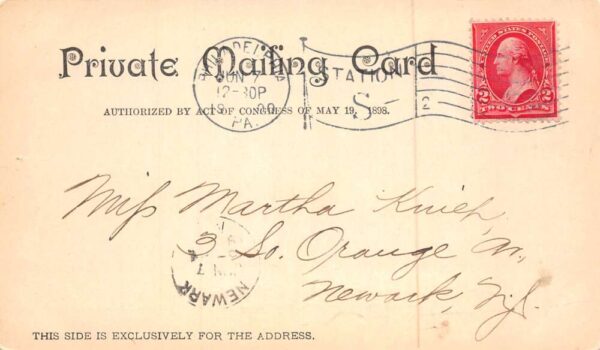 Private Mailing Card
PHILADELPHIA
JUN 7
12-30P
1900
PA.
STATION
S
2
UNITED STATES POSTAGE
2 2
TWO CENTS
AUTHORIZED BY ACT OF CONGRESS OF MAY 19, 1898.
Miss Martha
3 So. Orange Av.,
Newark, N.J.
NEWARK
THIS SIDE IS EXCLUSIVELY FOR THE ADDRESS.